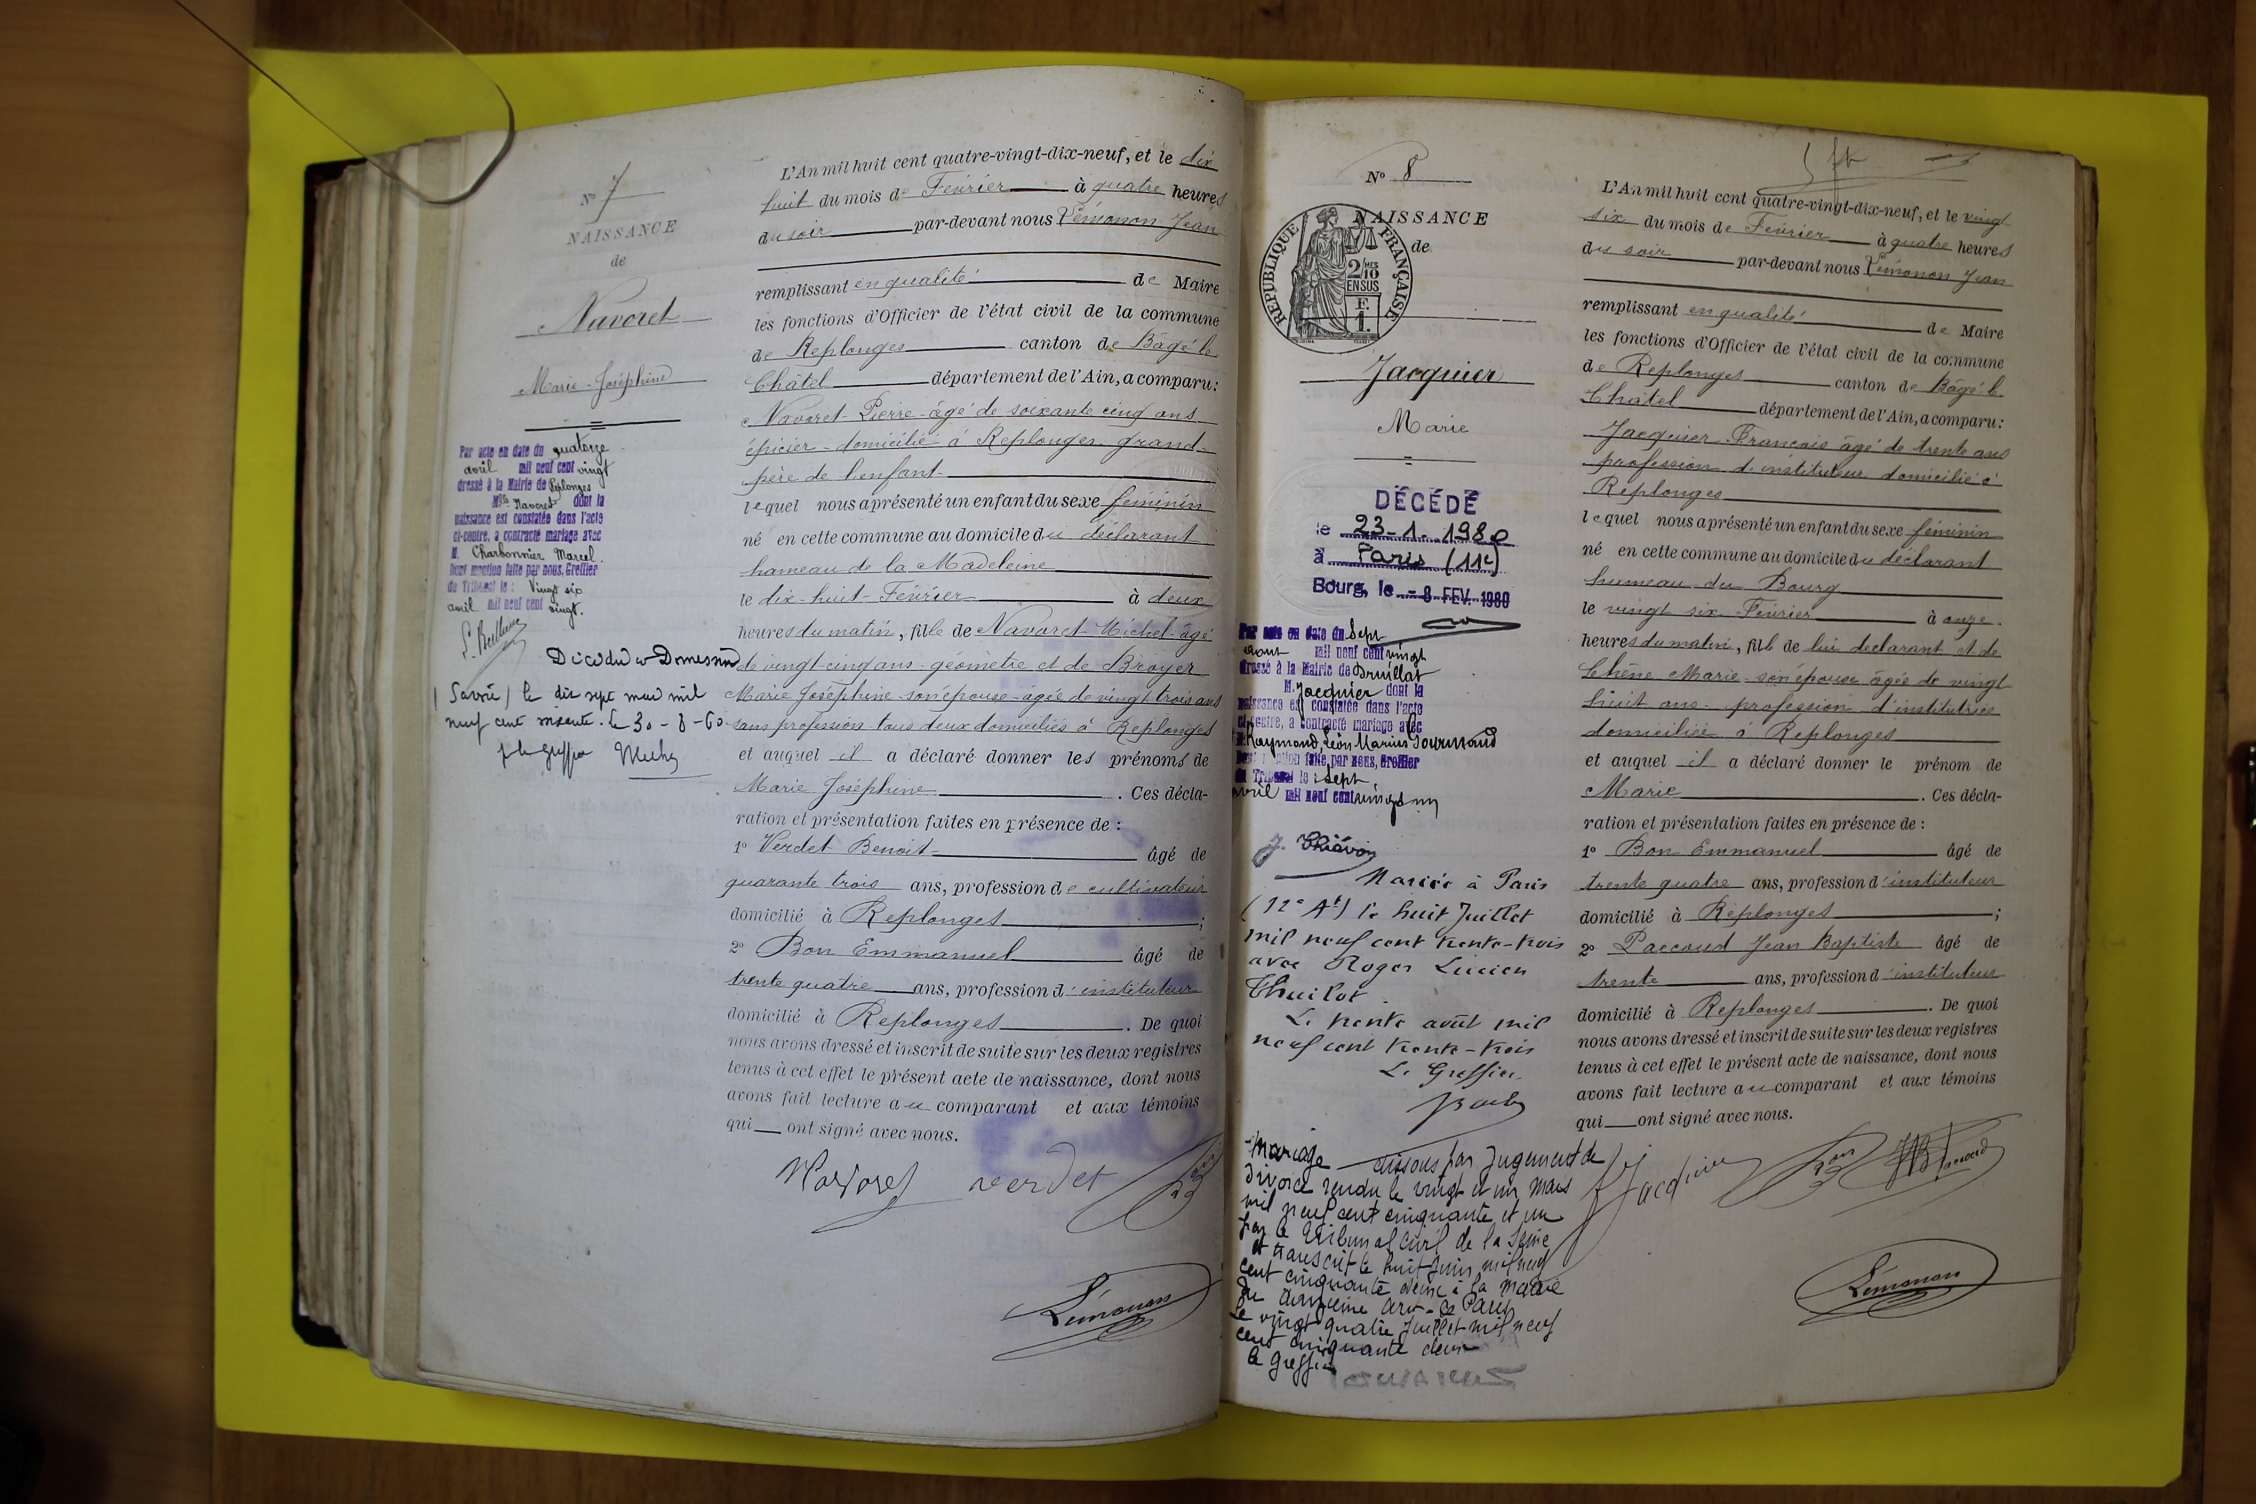 N° 7
NAISSANCE
de
Navoret
Marie-Joséphine
Par acte en date du quatorze
avril mil neuf cent vingt
dressé à la Mairie de Replonges
Mlle Navoret dont la
naissance est constatée dans l'acte
ci-contre, a contracté mariage avec
M. Charbonnier Marcel.
Dont mention faite par nous, Greffier
du Tribunal le : Vingt six
avril mil neuf cent vingt.
Décédée à Domessin
(Savoie) le dix sept mai mil
neuf cent soixante. Le 30-8-60
p. le greffier
L'An mil huit cent quatre-vingt-dix-neuf, et le dix
huit du mois de Février à quatre heures
du soir par-devant nous Lémonon Jean
remplissant en qualité de Maire
les fonctions d'Officier de l'état civil de la commune
de Replonges canton de Bâgé le
Châtel département de l'Ain, a comparu :
Navoret Pierre âgé de soixante cinq ans
épicier domicilié à Replonges grand-
père de l'enfant
lequel nous a présenté un enfant du sexe féminin
né en cette commune au domicile du déclarant
hameau de la Madeleine
le dix-huit Février à deux
heures du matin, fille de Navoret Michel âgé
de vingt cinq ans géomètre et de Broyer
Marie Joséphine son épouse âgée de vingt trois ans
sans profession tous deux domiciliés à Replonges
et auquel il a déclaré donner les prénoms de
Marie Joséphine. Ces décla-
ration et présentation faites en présence de :
1° Verdet Benoit âgé de
quarante trois ans, profession de cultivateur
domicilié à Replonges ;
2° Bon Emmanuel âgé de
trente quatre ans, profession d'instituteur
domicilié à Replonges. De quoi
nous avons dressé et inscrit de suite sur les deux registres
tenus à cet effet le présent acte de naissance, dont nous
avons fait lecture au comparant et aux témoins
qui ont signé avec nous.
Navoret verdet Bon
Lémonon
N° 8
NAISSANCE
de
RÉPUBLIQUE FRANÇAISE
2/10 MES
EN SUS
F.
1.
Jacquier
Marie
DÉCÉDÉ
le 23-1-1980
à Paris (11e)
Bourg, le - 8 FEV. 1980
Par acte en date du Sept
aout mil neuf cent vingt
dressé à la Mairie de Druillat
M. Jacquier dont la
naissance est constatée dans l'acte
ci-contre, a contracté mariage avec
M. Raymond Léon Marius Gournaud
Dont mention faite par nous, Greffier
du Tribunal le : Sept
avril mil neuf cent vingt un
Mariée à Paris
(12e At) le huit Juillet
mil neuf cent trente-trois
avec Roger Lucien
Thuilot.
Le trente août mil
neuf cent trente-trois
Le Greffier
Mariage dissous par jugement de
divorce rendu le vingt et un mars
mil neuf cent cinquante et un
par le tribunal civil de la Seine
et transcrit le huit juin mil neuf
cent cinquante deux à la mairie
du douzième arr. de Paris
Le vingt quatre juillet mil neuf
cent cinquante deux
le greffier
L'An mil huit cent quatre-vingt-dix-neuf, et le vingt
six du mois de Février à quatre heures
du soir par-devant nous Lémonon Jean
remplissant en qualité de Maire
les fonctions d'Officier de l'état civil de la commune
de Replonges canton de Bâgé le
Châtel département de l'Ain, a comparu :
Jacquier François âgé de trente ans
profession d'instituteur domicilié à
Replonges
lequel nous a présenté un enfant du sexe féminin
né en cette commune au domicile du déclarant
hameau du Bourg
le vingt six Février à onze
heures du matin, fille de lui déclarant et de
Chêne Marie son épouse âgée de vingt
huit ans profession d'institutrice
domiciliée à Replonges
et auquel il a déclaré donner le prénom de
Marie. Ces décla-
ration et présentation faites en présence de :
1° Bon Emmanuel âgé de
trente quatre ans, profession d'instituteur
domicilié à Replonges ;
2° Paccoud Jean Baptiste âgé de
trente ans, profession d'instituteur
domicilié à Replonges. De quoi
nous avons dressé et inscrit de suite sur les deux registres
tenus à cet effet le présent acte de naissance, dont nous
avons fait lecture au comparant et aux témoins
qui ont signé avec nous.
F Jacquier Bon JB Paccoud
Lémonon